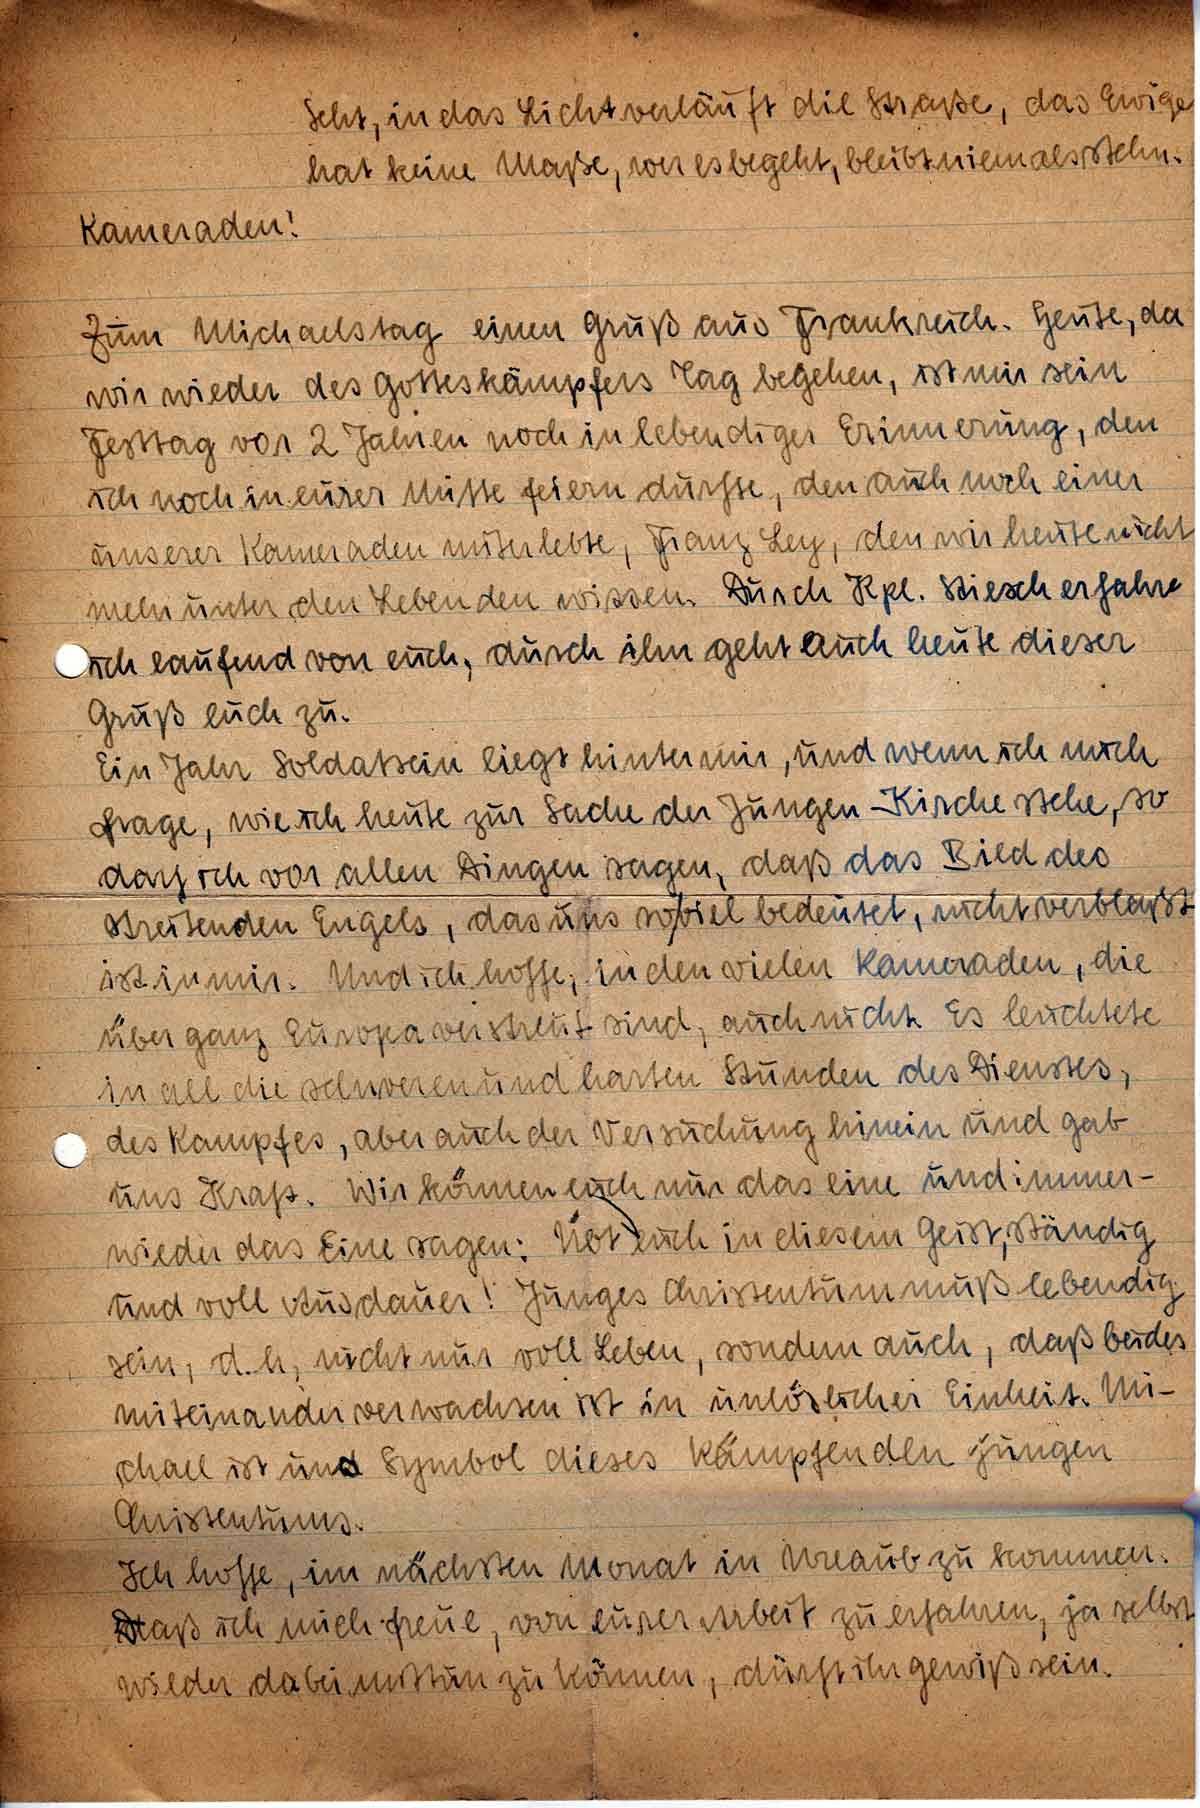 Seht, in das Licht verläuft die Straße, das Ewige
hat keine Maße, wer es begeht, bleibt niemals stehn.
Kameraden!
Zum Michaelstag einen Gruß aus Frankreich. Heute, da
wir wieder des Gotteskämpfers Tag begehen, ist mir sein
Festtag vor 2 Jahren noch in lebendiger Erinnerung, den
ich noch in eurer Mitte feiern durfte, den auch noch einer
unserer Kameraden miterlebte, Franz Ley, den wir heute nicht
mehr unter den Lebenden wissen. Durch Kpl. Stiesch erfahre
ich laufend von euch, durch ihn geht auch heute dieser
Gruß euch zu.
Ein Jahr Soldatsein liegt hinter mir, und wenn ich mich
frage, wie ich heute zur Sache der Jungen Kirche stehe, so
darf ich vor allen Dingen sagen, daß das Bild des
streitenden Engels, das uns soviel bedeutet, nicht verblaßt
ist in mir. Und ich hoffe, in den vielen Kameraden, die
über ganz Europa verstreut sind, auch nicht. Es leuchtete
in all die schweren und harten Stunden des Dienstes,
des Kampfes, aber auch der Versuchung hinein und gab
uns Kraft. Wir können euch nur das eine und immer-
wieder das Eine sagen: Übt euch in diesem Geist, ständig
und voll Ausdauer! Junges Christentum muß lebendig
sein, d.h, nicht nur voll Leben, sondern auch, daß beides
miteinander verwachsen ist in unlöslicher Einheit. Mi-
chael ist uns Symbol dieses kämpfenden jungen
Christentums.
Ich hoffe, im nächsten Monat in Urlaub zu kommen.
Daß ich mich freue, von eurer Arbeit zu erfahren, ja selbst
wieder dabei mittun zu können, dürft ihr gewiß sein.